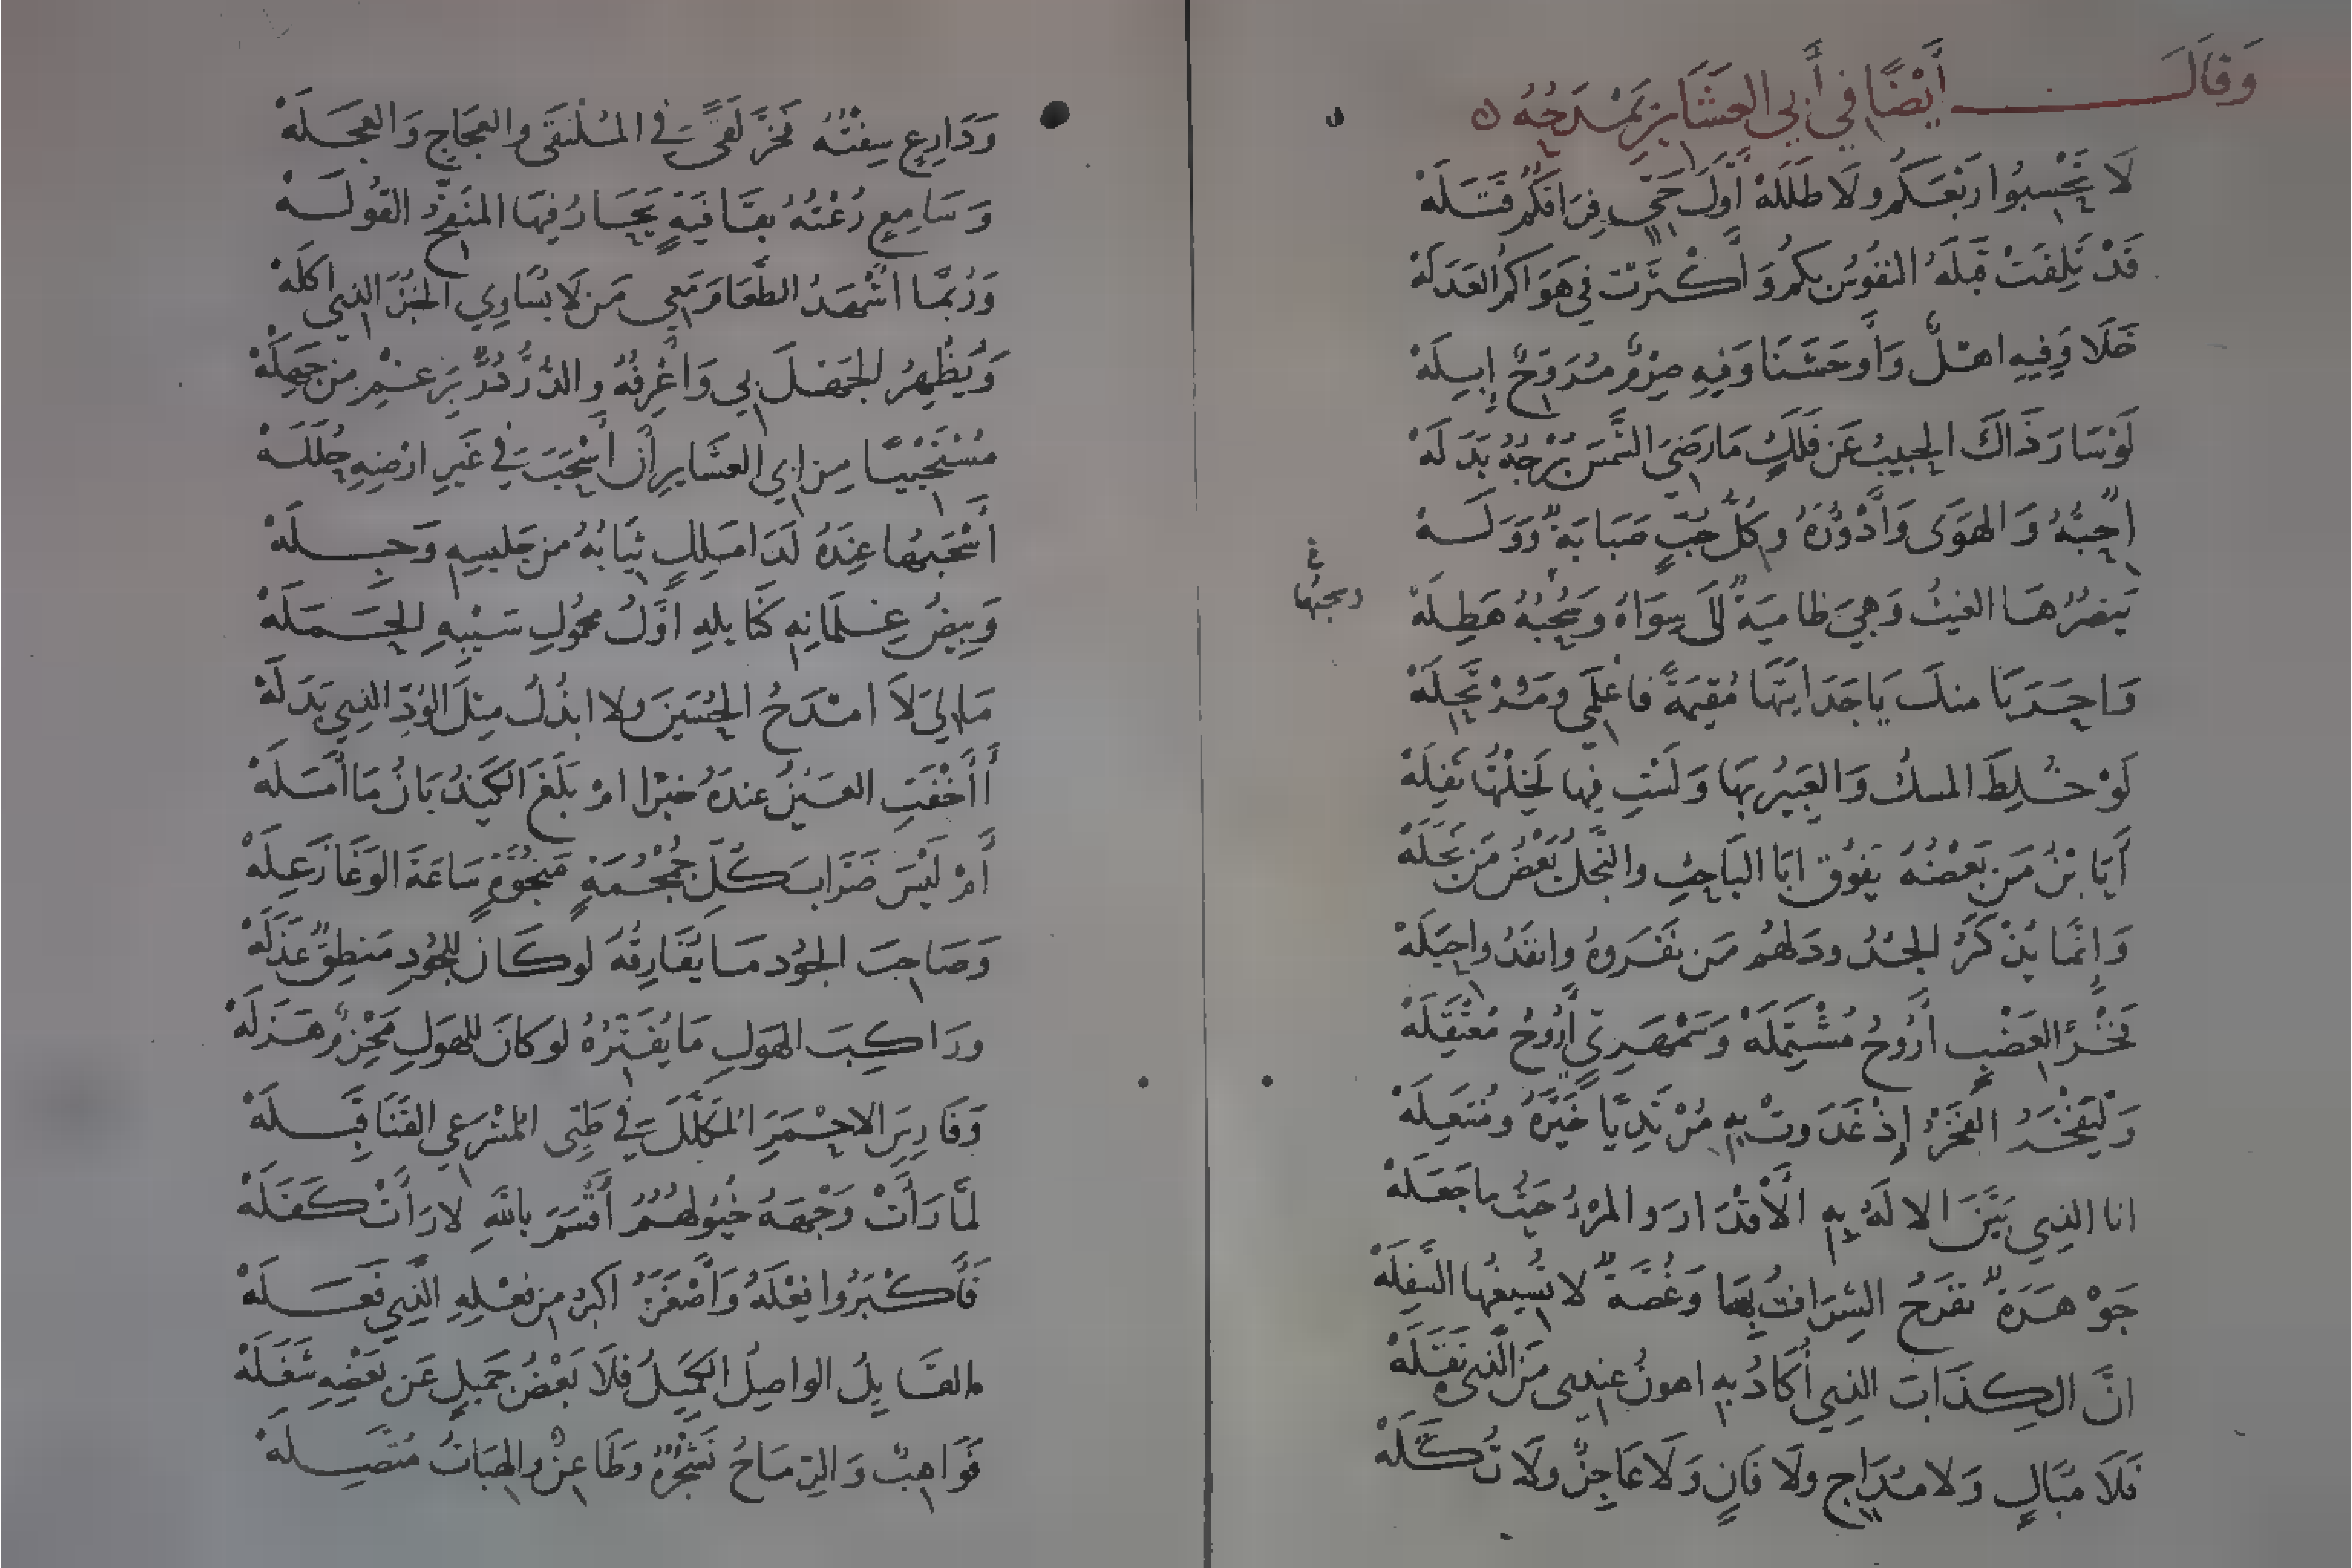 وَقَالَ أَيْضًا فِي أَبِي العَشَائِرِ يَمْدَحُهُ
لَا تَحْسِبُوا رَبْعَكُم وَلَا طَلَلَهْ أَوَّلَ حَيٍّ فِرَاقُكُم قَتَلَهْ
قَدْ تَلِفَتْ قَبْلَهُ النفُوسُ بِكُم وَأَكْثَرَتْ فِي هَوَاكُمُ العَذَلَهْ
خَلَا وَفِيهِ اهْلٌ وَأَوحَشَنَا وَفِيهِ صِرْمٌ مُرَوِّحٌ إِبِلَهْ
لَوْ سَارَ ذَاكَ الحبِيبُ عَن فَلَكٍ مَا رَضِيَ الشَّمسَ بُرْجُهُ بَدَلَهْ
احِبُّهُ وَالهَوَى وَأَدْؤُرَهُ وَكُلُّ حُبٍّ صَبَابَةٌ وَوَلَهْ
يَنصُرُهَا الغيثُ وَهِيَ ظامِيَةٌ الَى سِوَاهُ وَسُحْبُهُ هَطِلَهْ
وَا حَرَبَا منكِ يَا جَدَايَتَهَا مُقِيمَةً فاعْلَمِي وَمُرْتَحِلَهْ
لَوْ خُلِطَ المسكُ وَالعَبِيرُ بِهَا وَلَسْتِ فِيها لَخِلْتُهَا تَفِلَهْ
أَنَا بْنُ مَن بَعْضُهُ يَفُوقُ ابَا البَاحِثِ والنَّجْلُ بَعْضُ مَن نَجَلَهْ
وَانمَّا يَذْكُرُ الجُدُودَ لهُم مَن نَفَرُوهُ وانفَدُوا حِيَلَهْ
فَخْرًا لِعَضْبٍ أَرُوحُ مُشْتَمِلَهْ وَسَمْهَرِيٍّ أَرُوحُ مُعْتَقِلَهْ
وَلْيَفْخَرُ الفَخْرُ إِذْ غَدَوتُ بِهِ مُرْتَدِيًا خَيْرَهُ ومُنتَعِلَهْ
انا الذِي بَيَّنَ الالَهُ بِهِ الأَقْدَارَ والمَرْءُ حَيثُ ما جَعَلَهْ
جَوْهَرَةٌ تَفرَحُ الشِرَافُ بِهَا وَغُصَّةٌ لا تُسِيغُها السَّفِلَهْ
انَّ الكِذَابَ الذِي أُكَادُ بِهِ اهونُ عِندِى مَن الَّذِى نَقَلَهْ
فَلَا مُبَالٍ وَلَا مُدَاجٍ ولَا فَانٍ وَلَا عَاجِزٌ ولَا تُكَلَهْ
وسحبها
وَدَارِعٍ سِفْتُهُ فَخَرَّ لَقًى فِي المُلْتَقَى والعَجَاجِ وَالعَجَلَهْ
وَسَامِعٍ رُعْتُهُ بِقَافِيَةٍ يَحَارُ فِيهَا المُنَقِّحُ القُوَلَهْ
وَرُبَّمَا اشْهَدُ الطَعَامَ مَعِي مَن لَا يُسَاوِي الخُبْزَ الذِي اكَلَهْ
وَيُظْهِرُ الجَهْلَ بِي وَأَعْرِفُهُ والدُّرُّ دُرٌّ بِرَغْمِ مِن جَهِلَهْ
مُسْتَحْيِيًا مِن ابِي العَشَايرِ أَن أَسْحَبَ فِي غَيرِ ارْضِهِ حُلَلَهْ
أَسْحَبُهَا عِندَهُ لَدَا مَلِكٍ ثِيَابُهُ مِن جَلِيسِهِ وَجِلَهْ
وَبِيضُ غِلْمَانِهِ كَنَايلِهِ اوَّلُ مَحمُولِ سَيْبِهِ الحَمَلَهْ
مَا لِي لَا امْدَحُ الحُسَينَ ولا ابْذُلُ مِثْلَ الوُدِّ الذِي بَذَلَهْ
أَأَخْفَتِ العَيْنُ عِندَهُ خَبَرًا امْ بَلَغَ الكَيْذُبَانُ مَا أَمَلَهْ
أَمْ لَيْسَ ضَرَّابَ كُلِّ جُمْجُمَةٍ مَنخُوَّةٍ سَاعَةَ الوَغَا زَعِلَهْ
وَصَاحِبَ الجُودِ مَا يُفَارِقُهُ لو كَانَ للِجُودِ مَنطِقٌ عَذَلَهْ
ورَاكِبَ الهَولِ مَا يُفَتِّرُهُ لو كَانَ للِهَولِ مَحْزِمٌ هَزَلَهْ
وَفَارِسَ الاحْمَرِ المُكَلِّلَ فِي طَيِّى المُشْرَعِ القَنَا قِبَلَهْ
لمَّا رَأَتْ وَجْهَهُ خُيُولُهُمُ أَقْسَمَ بِاللَّهِ لا رَأَتْ كَفَلَهْ
فَأَكْبَرُوا فِعْلَهُ وَأَصْغَرَهُ اكبَرُ مِن فِعْلِهِ الَّذِي فَعَلَهْ
القَايِلُ الواصِلُ الكَمِيلُ فلَا بَعْضُ جَمِيلٍ عَن بَعْضِهِ شَغَلَهْ
فَوَاهِبٌ وَالرِّمَاحُ تَشْجُرُهُ وَطَاعِنٌ وَالهِبَاتُ مُتَّصِلَهْ